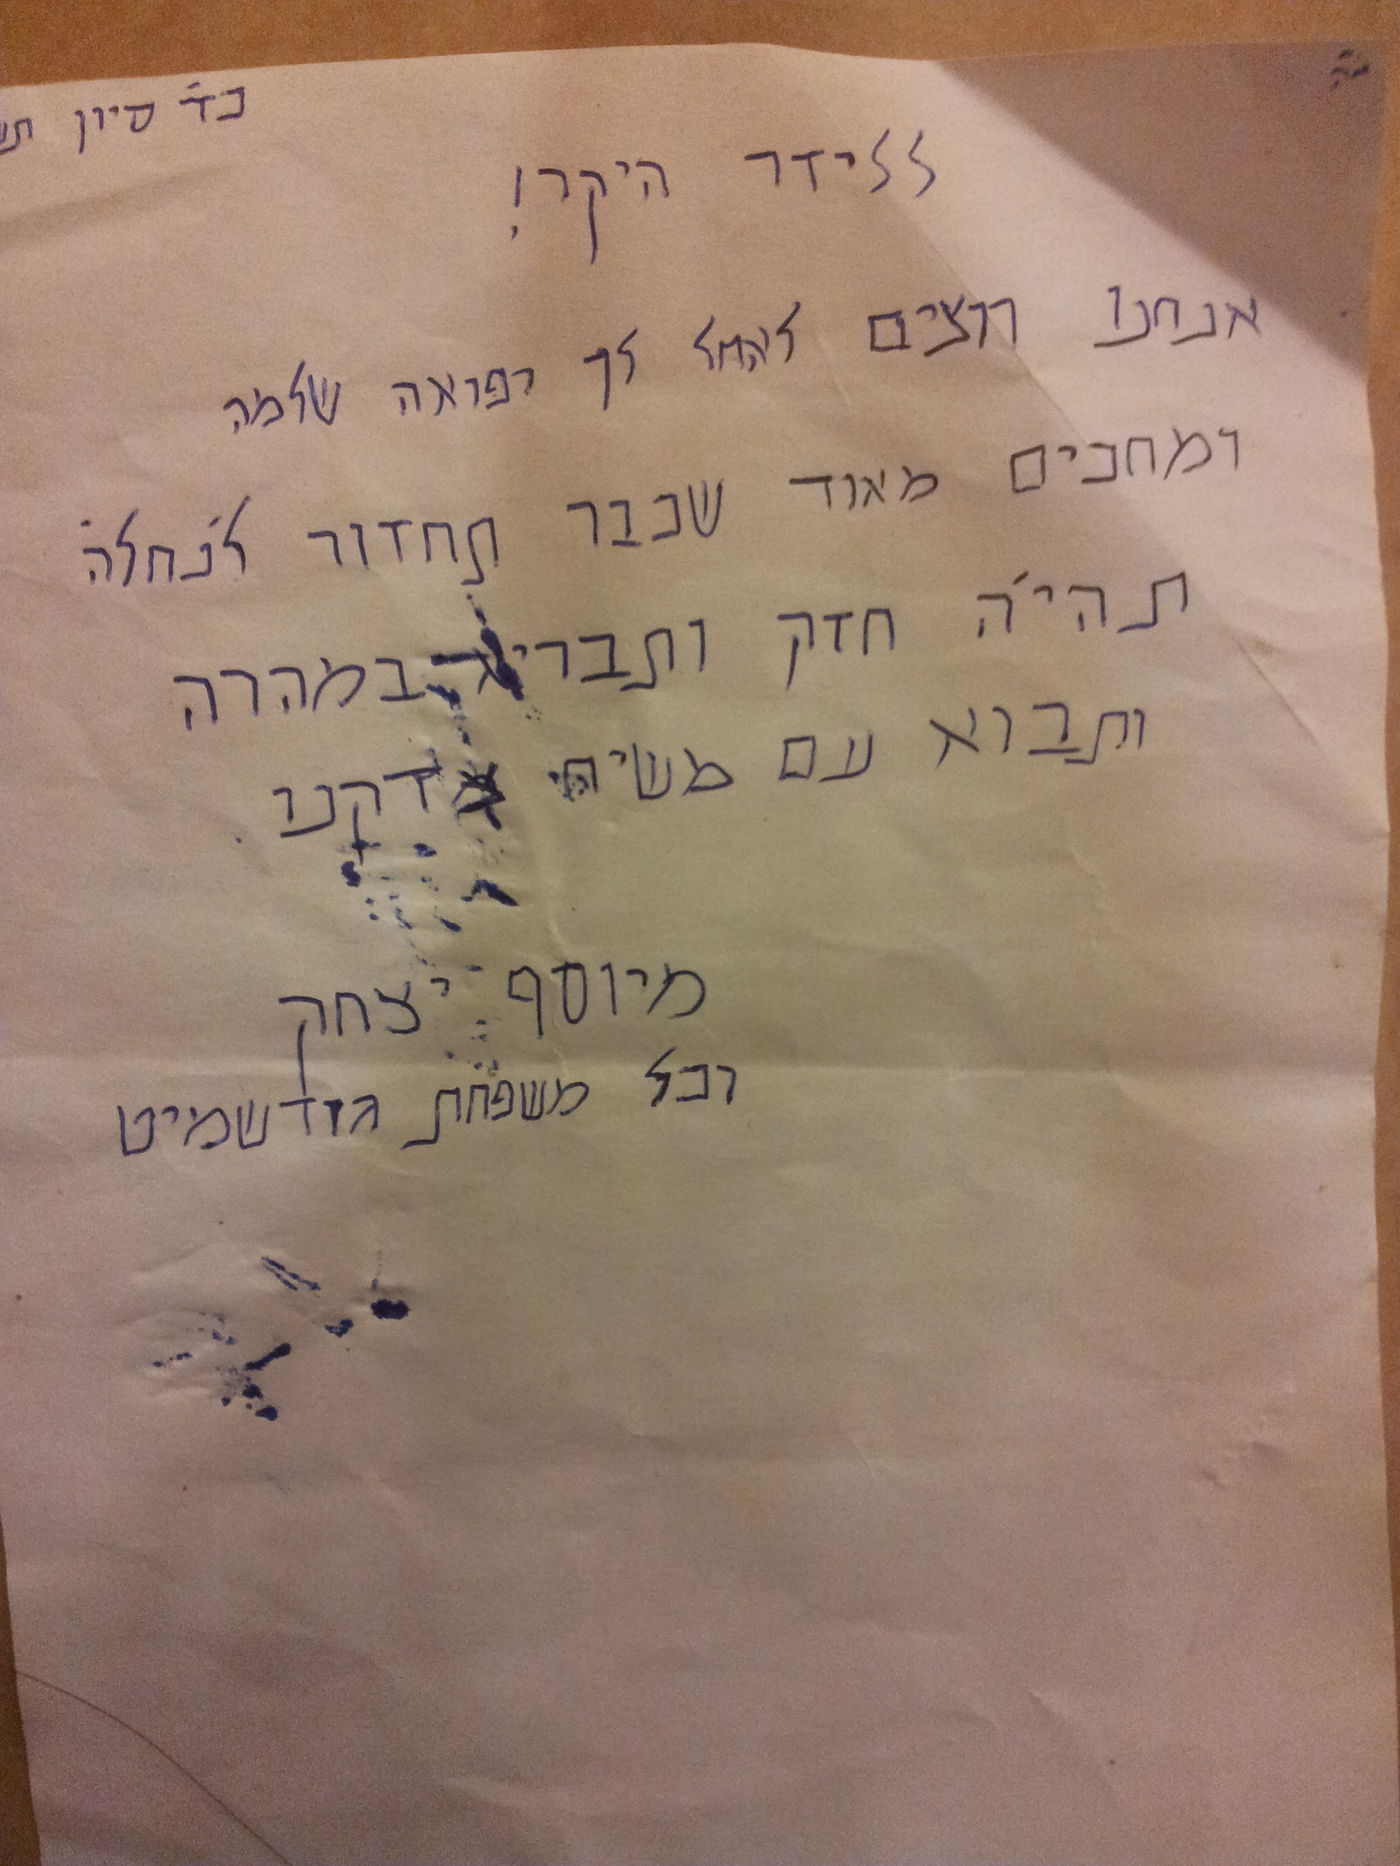 ב"ה
כ"ד סיון
לליזר היקר!
אנחנו רוצים לאחל לך רפואה שלמה
ומחכים מאוד שכבר תחזור ל'נחלה'
תהי'ה חזק ותבריא במהרה
ותבוא עם משיח צדקנו
מיוסף יצחק
וכל משפחת